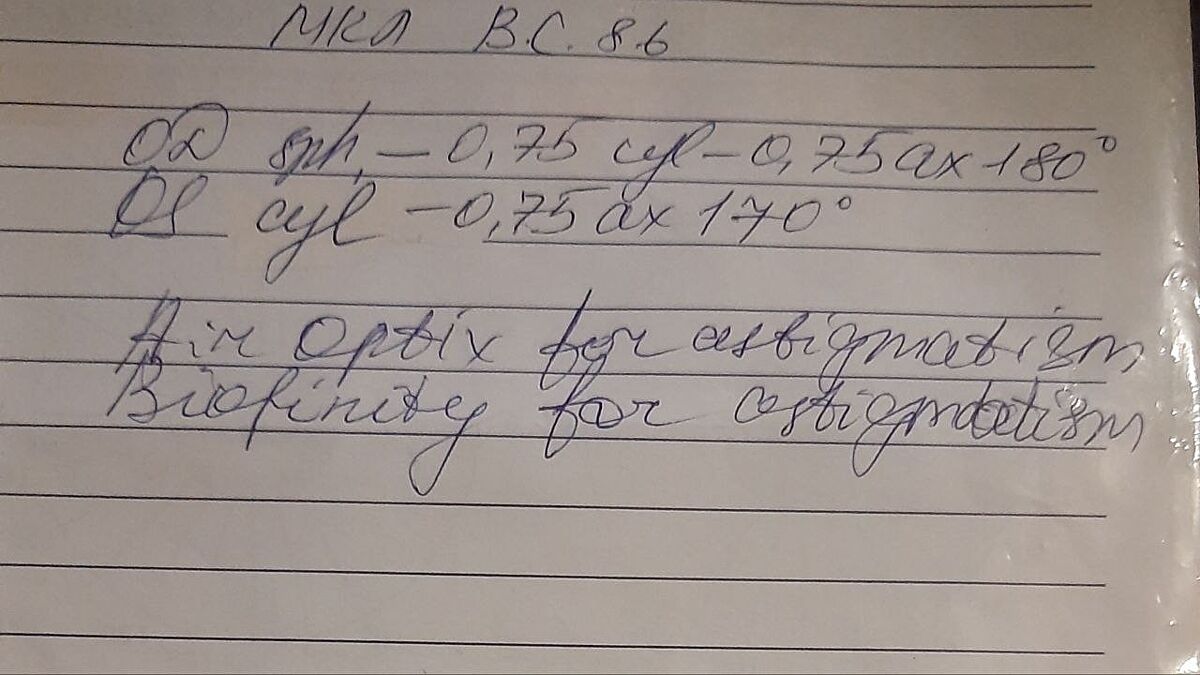 МКЛ B.C. 8.6
OD sph, – 0,75 cyl – 0,75 ax 180°
OS cyl – 0,75 ax 170°
Air Optix for astigmatism
Biofinity for astigmatism